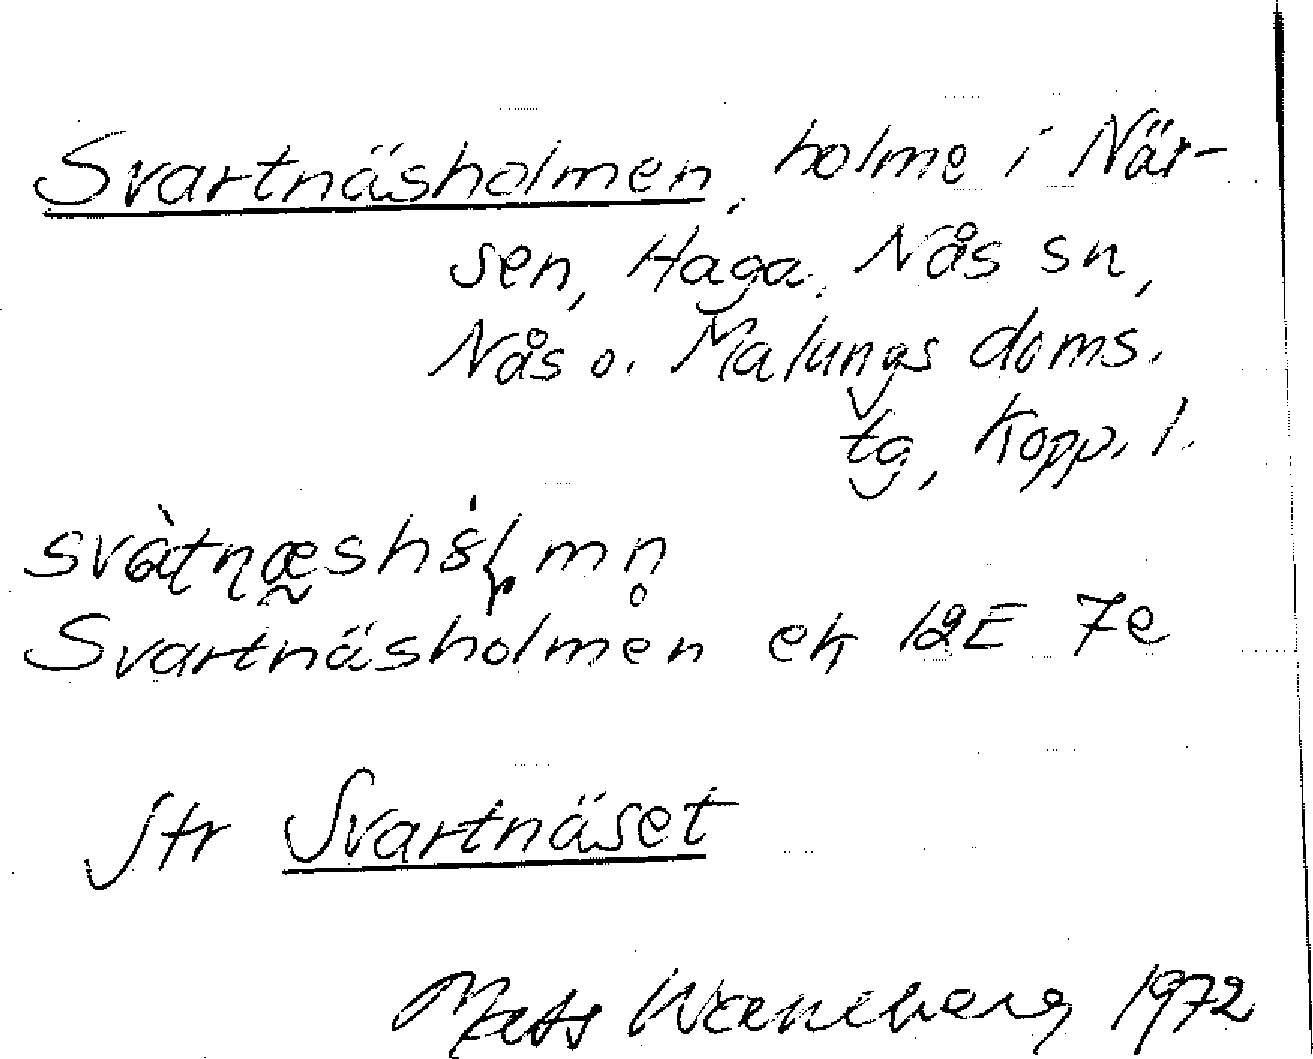 Svartnäsholmen, holme i När-
sen, Haga, Nås sn,
Nås o. Malungs doms.
tg, Kopp. l.
Svartnäsholmen ek 12E 7e
Jfr Svartnäset
Mats 1972